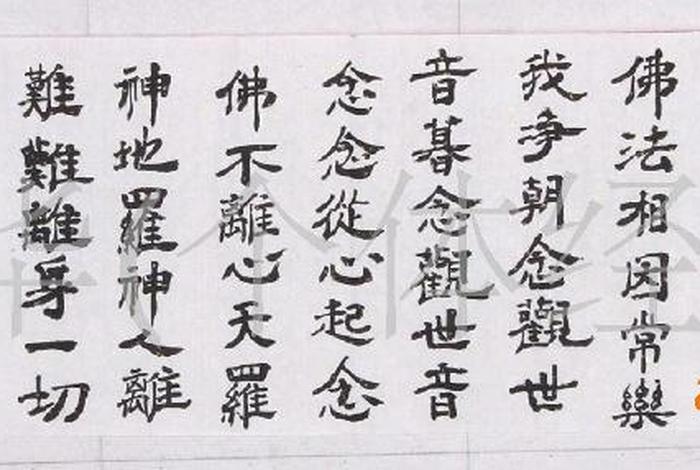 佛法相因常樂
我淨朝念觀世
音暮念觀世音
念念從心起念
佛不離心天羅
神地羅神人離
難難離身一切
个体经